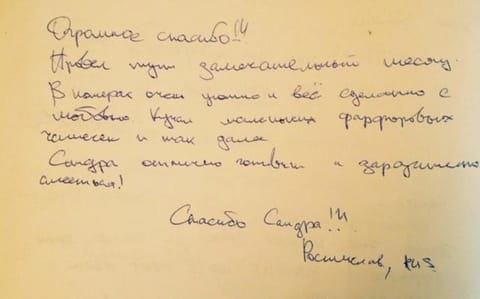 Огромное спасибо!!!
Провел тут замечательный месяц.
В номерах очень уютно и всё сделанно с
любовью Кучи маленьких фарфоровых
чашечек и так далее
Сандра отлично готовит и заразительно
смееться!
Спасибо Сандра!!!
Ростислав, RUS